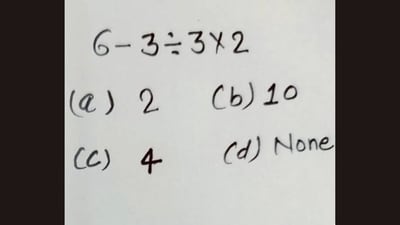 6-3÷3×2
(a) 2 (b) 10
(c) 4 (d) None